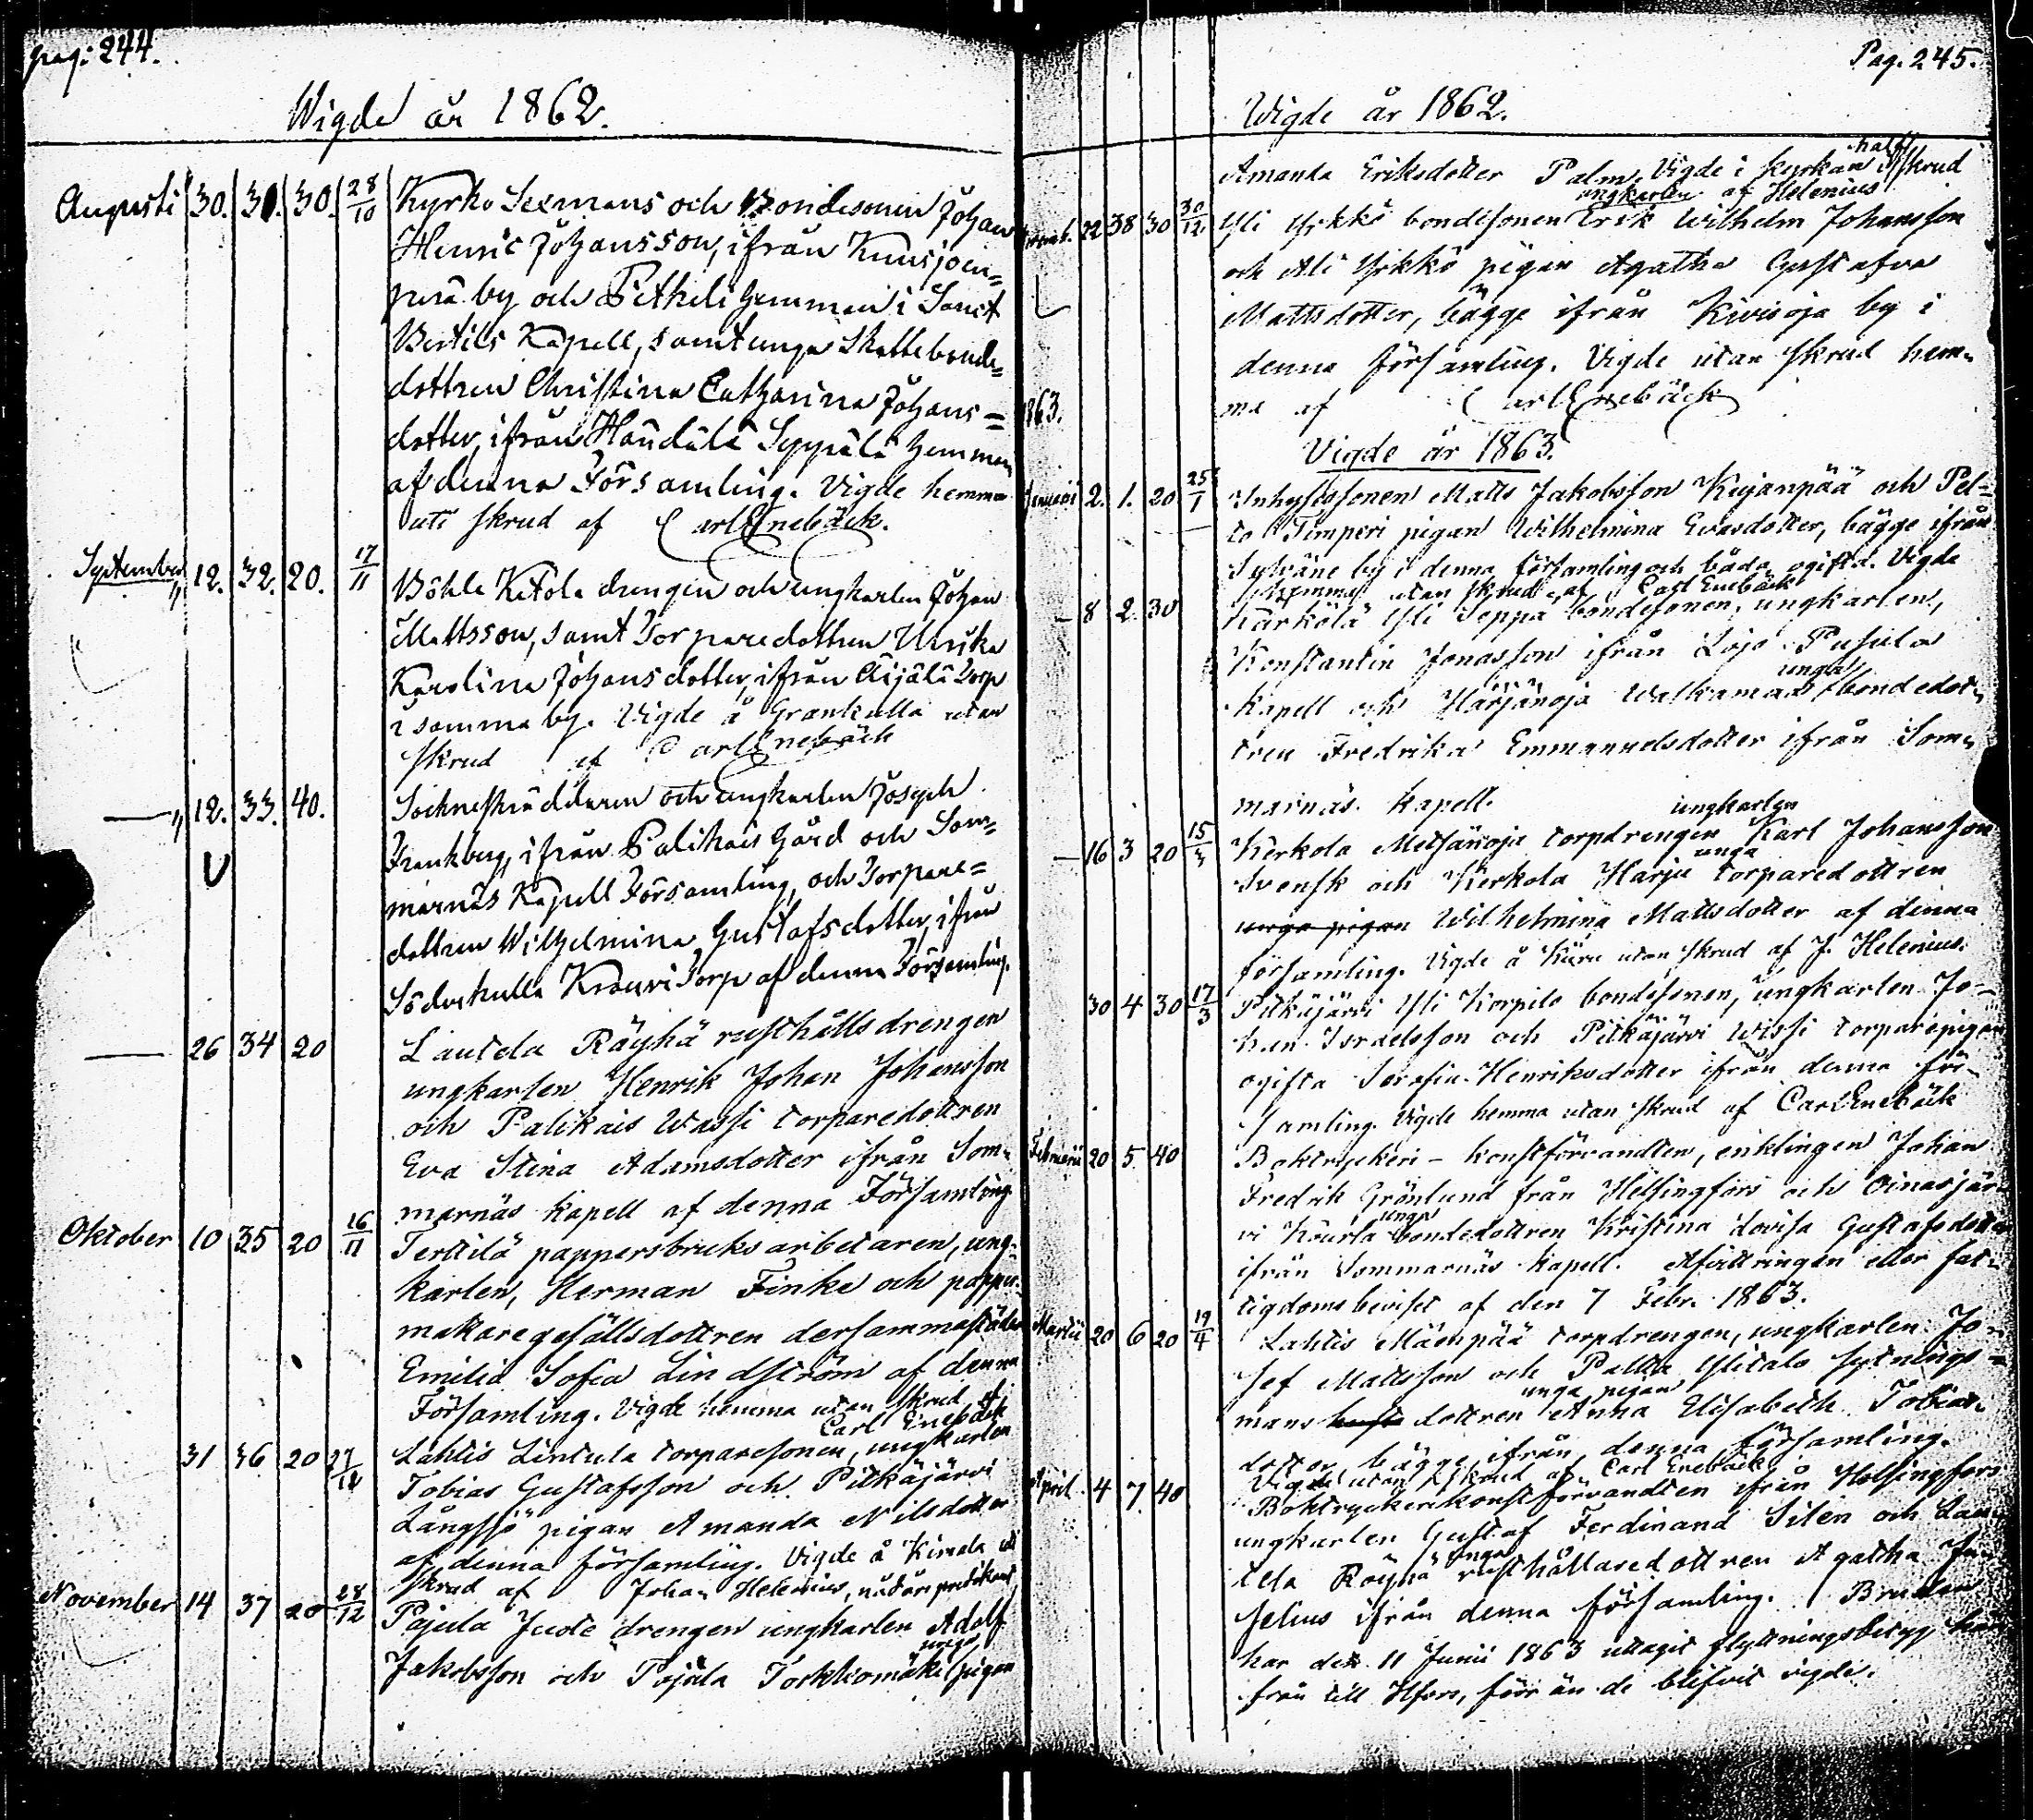 pag: 244.
Wigde år 1862.
Augusti 30. 31. 30. 28/10 Kyrko Sexmans och Bondesonen Johan
Henric Johansson, ifrån Kuusjoen-
perä by och Pethili hemman i Sanct
Bertils Kapell, samt unga Skattebonde-
dottren Christina Catharina Johans=
dotter, ifrån Händälä Seppälä hemman
af denna Församling. Vigde hemma
uti skrud af Carl Enebäck.
September 12. 32. 20. 17/11 Böhle Ketola drengen och ungkarlen Johan
Mattsson, samt Torparedottren Ulrika
Karolina Johansdotter, ifrån Äijälä Torp
i samma by. Vigde å Grankulla utan
skrud af Carl Enebäck
—„ 12. 33. 40. Socknskräddaren och ungkarlen Joseph
Frankberg, ifrån Palikais Gård och Som=
marnäs Kapell Församling, och Torpare=
dottren Wilhelmina Gustafsdotter, ifrån
Söderkulla Krouvi Torp af denna Församling.
— 26 34 20 Lautela Räyhä rusthålls drengen
ungkarlen Henrik Johan Johansson
och Palikais Wassi torparedottren
Eva Stina Adamsdotter ifrån Som-
marnäs kapell af denna Församling
Oktober 10 35 20 16/11 Terttilä pappersbruks arbetaren, ung-
karlen, Herman Finke och pappers
makaregesällsdottren dersammastädes
Emilia Sofia Lindström af denna
Församling. Vigde hemma utan skrud af
Carl Enebäck
31 36 20 27/12 Lahtis Lintula torparesonen, ungkarlen
Tobias Gustafsson och Pitkäjärvi
Långsjö pigan Amanda Nilsdotter
af denna församling. Vigde å Kimala uti
skrud af Johan Helenius, nådårspredikant
November 14 37 20 28/12 Pajula Juote drengen ungkarlen Adolf
unga
Jakobsson och Pajula Torkkomäki pigan
Pag. 245.
Wigde år 1862.
half
Amanda Eriksdotter Palm. Vigde i kyrkan i skrud
ungkarlen af Helenius
22 38 30 30/12 Yli Yrkkö bondesonen Erik Wilhelm Johansson
och Ali Yrkkö pigan Agatha Gustafva
Mattsdotter, bägge ifrån Kivisoja by i
denna församling. Vigde utan skrud hem-
ma af Carl Enebäck
1863.
Vigde år 1863.
Januari 2. 1. 20 25/1 Inhysessonen Matts Jakobsson Kujanpää och Pel-
to Timperi pigan Wilhelmina Evasdotter, bägge ifrån
Sylväne by i denna församling och båda ogifta. Vigde
hemma utan skrud af Carl Enebäck
— 8 2 30 Kärkölä Yli Seppä bondesonen, ungkarlen,
Konstantin Jonasson ifrån Lojo Pusula
unga
Kapell och Härjänoja Walkamaa bondedot-
tren Fredrika Emmanuelsdotter ifrån Som-
marnäs kapell.
ungkarlen
— 16 3 20 15/3 Kerkola Metsänoja torpdrengen Karl Johansson
unga
Svensk och Kerkola Harju torparedottren
unga pigan Wilhelmina Mattsdotter af denna
församling. Vigde å Kura utan skrud af J. Helenius.
30 4 30 17/3 Pitkäjärvi Yli Korpilo bondesonen, ungkarlen Jo-
han Israelsson och Pitkäjärvi Wissi torparepigan
ogifta Serafia Henriksdotter ifrån denna för-
samling. Vigde hemma utan skrud af Carl Enebäck
Februarii 20 5. 40 Boktryckeri-konstförvandten, enklingen Johan
Fredrik Grönlund från Helsingfors och Oinasjär-
unga
vi Kourla bondedottren Kristina Lovisa Gustafsdotter
ifrån Sommarnäs kapell. Afvittringen eller fat-
tigdomsbeviset af den 7 Febr. 1863.
Martii 20 6 20 19/4 Lahtis Mäenpää torpdrengen, ungkarlen Jo-
sef Mattsson och Palttla Ylitalo sytnings-
unga pigan
mans dottren Anna Elisabeth Tobias-
dotter, bägge ifrån denna församling.
Vigde utan skrud af Carl Enebäck
April 4 7. 40 Boktryckerikonstförvandten ifrån Helsingfors
ungkarlen Gustaf Ferdinand Silén och Lau-
unga
tela Räyhä rusthållaredottren Agatha
selius ifrån denna församling. Bruden
har den 11 Junii 1863 uttagit flyttningsbetyg här
från till Hfors, förr än de blifvit vigde.